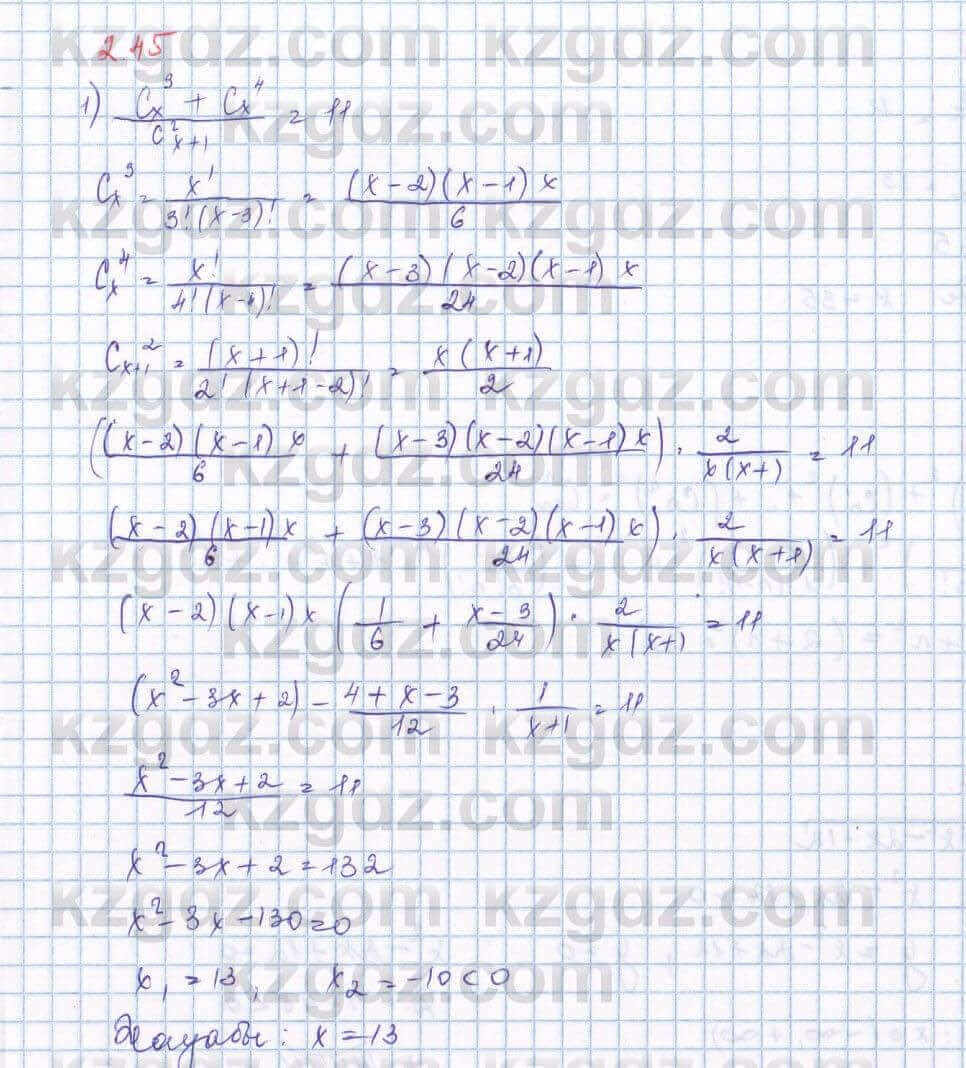 2.45
1) (C_x^3 + C_x^4)/(C_{x+1}^2) = 11
C_x^3 = x!/(3!(x-3)!) = ((x-2)(x-1)x)/6
C_x^4 = x!/(4!(x-4)!) = ((x-3)(x-2)(x-1)x)/24
C_{x+1}^2 = (x+1)!/(2!(x+1-2)!) = (x(x+1))/2
(((x-2)(x-1)x)/6 + ((x-3)(x-2)(x-1)x)/24) · 2/(x(x+)) = 11
(((x-2)(x-1)x)/6 + ((x-3)(x-2)(x-1)x)/24) · 2/(x(x+1)) = 11
(x-2)(x-1)x (1/6 + (x-3)/24) · 2/(x(x+)) = 11
(x^2-3x+2) - (4+x-3)/12 · 1/(x+1) = 11
(x^2-3x+2)/12 = 11
x^2-3x+2=132
x^2-3x-130=0
x_1=13, x_2=-10<0
Жауабы: x=13
kzgdz.com